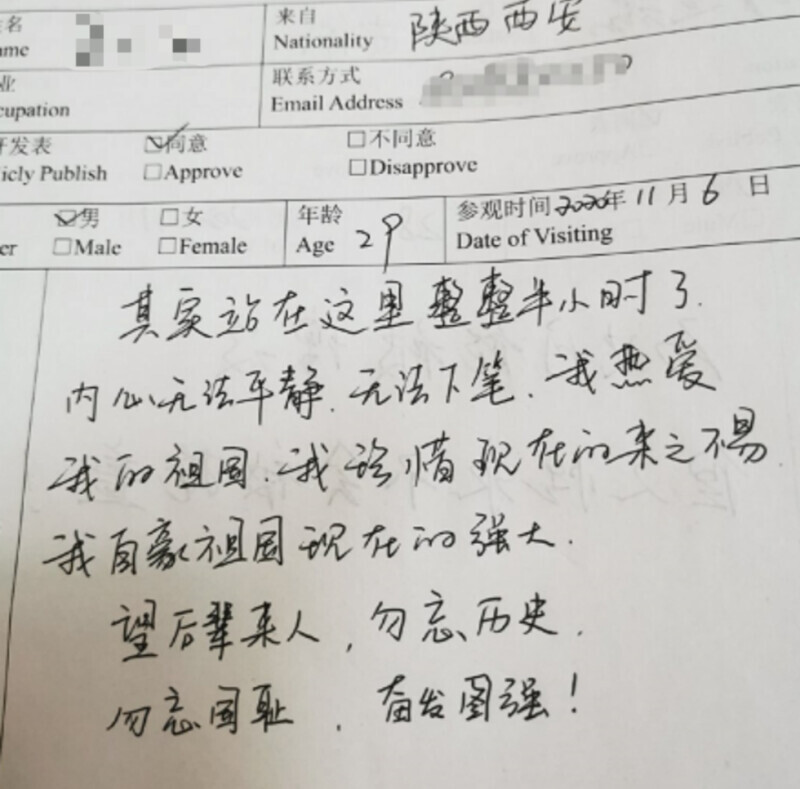 姓名 来自 陕西西安
ame Nationality
业 联系方式
cupation Email Address
开发表 同意 不同意
icly Publish Approve Disapprove
男 女 年龄 29 参观时间 2020年 11 月 6 日
er Male Female Age Date of Visiting
其实站在这里整整半小时了.
内心无法平静.无法下笔.我热爱
我的祖国.我珍惜现在的来之不易
我自豪祖国现在的强大.
望后辈来人,勿忘历史.
勿忘国耻,奋发图强!